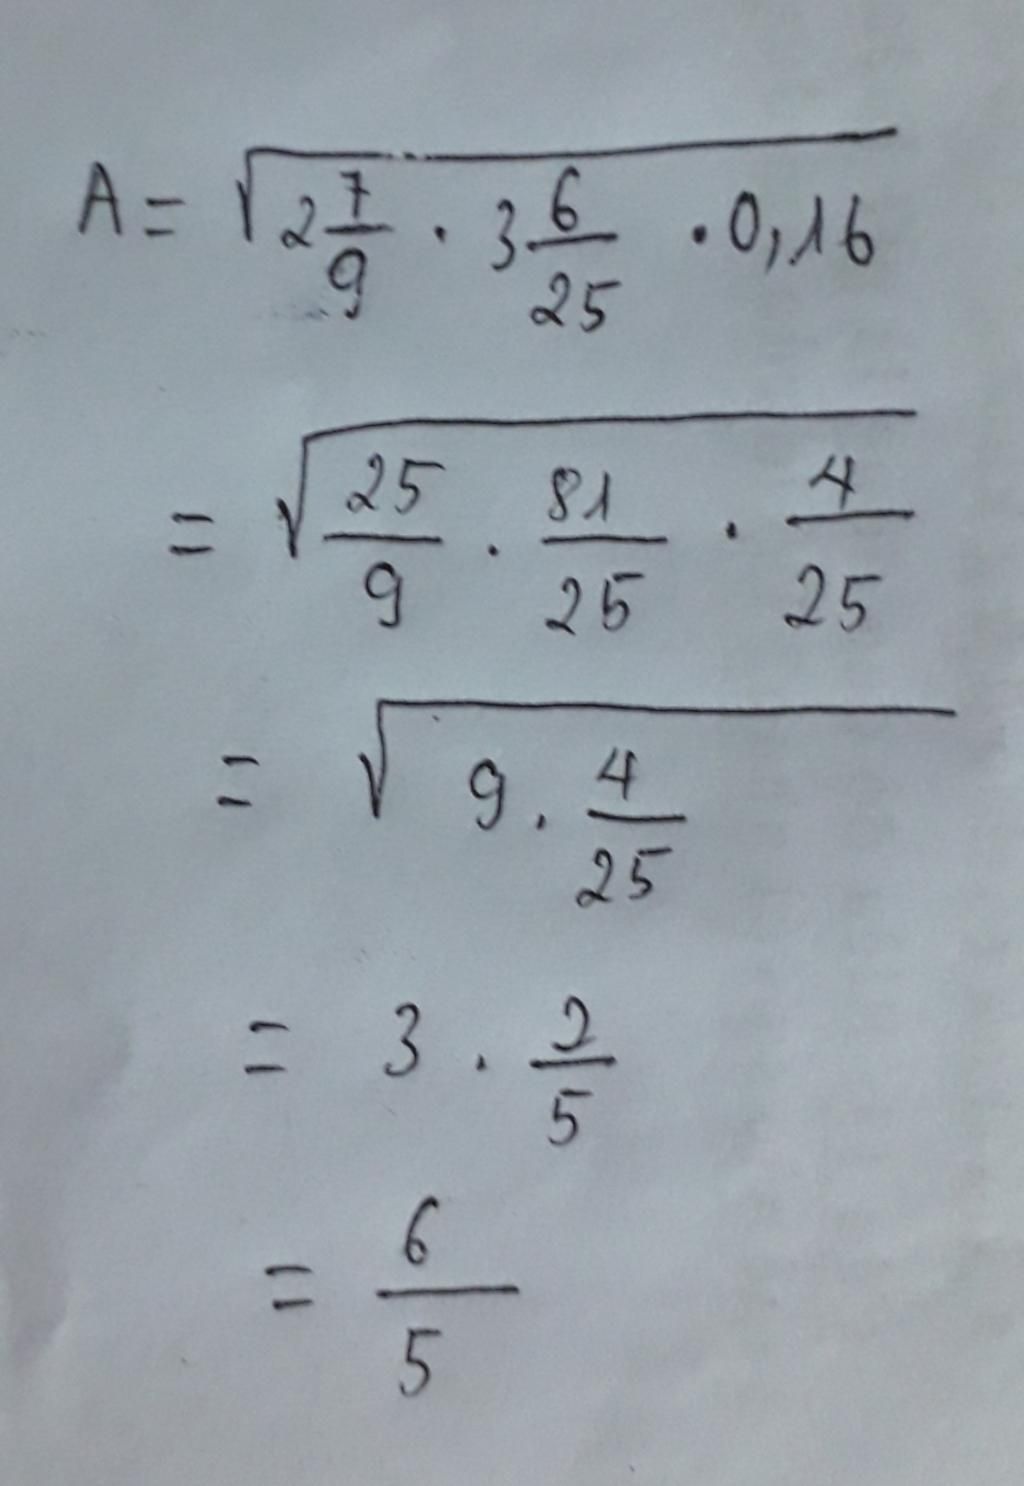 A = √(2 7/9 · 3 6/25 · 0,16)
= √(25/9 · 81/25 · 4/25)
= √(9 . 4/25)
= 3 . 2/5
= 6/5